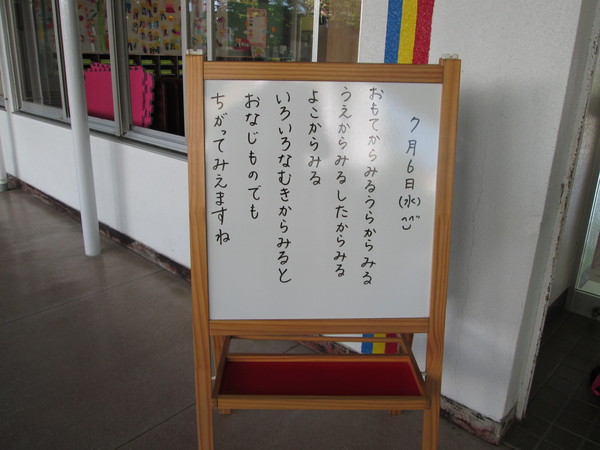 7月6日(水)
おもてからみるうらからみる
うえからみるしたからみる
よこからみる
いろいろなむきからみると
おなじものでも
ちがってみえますね